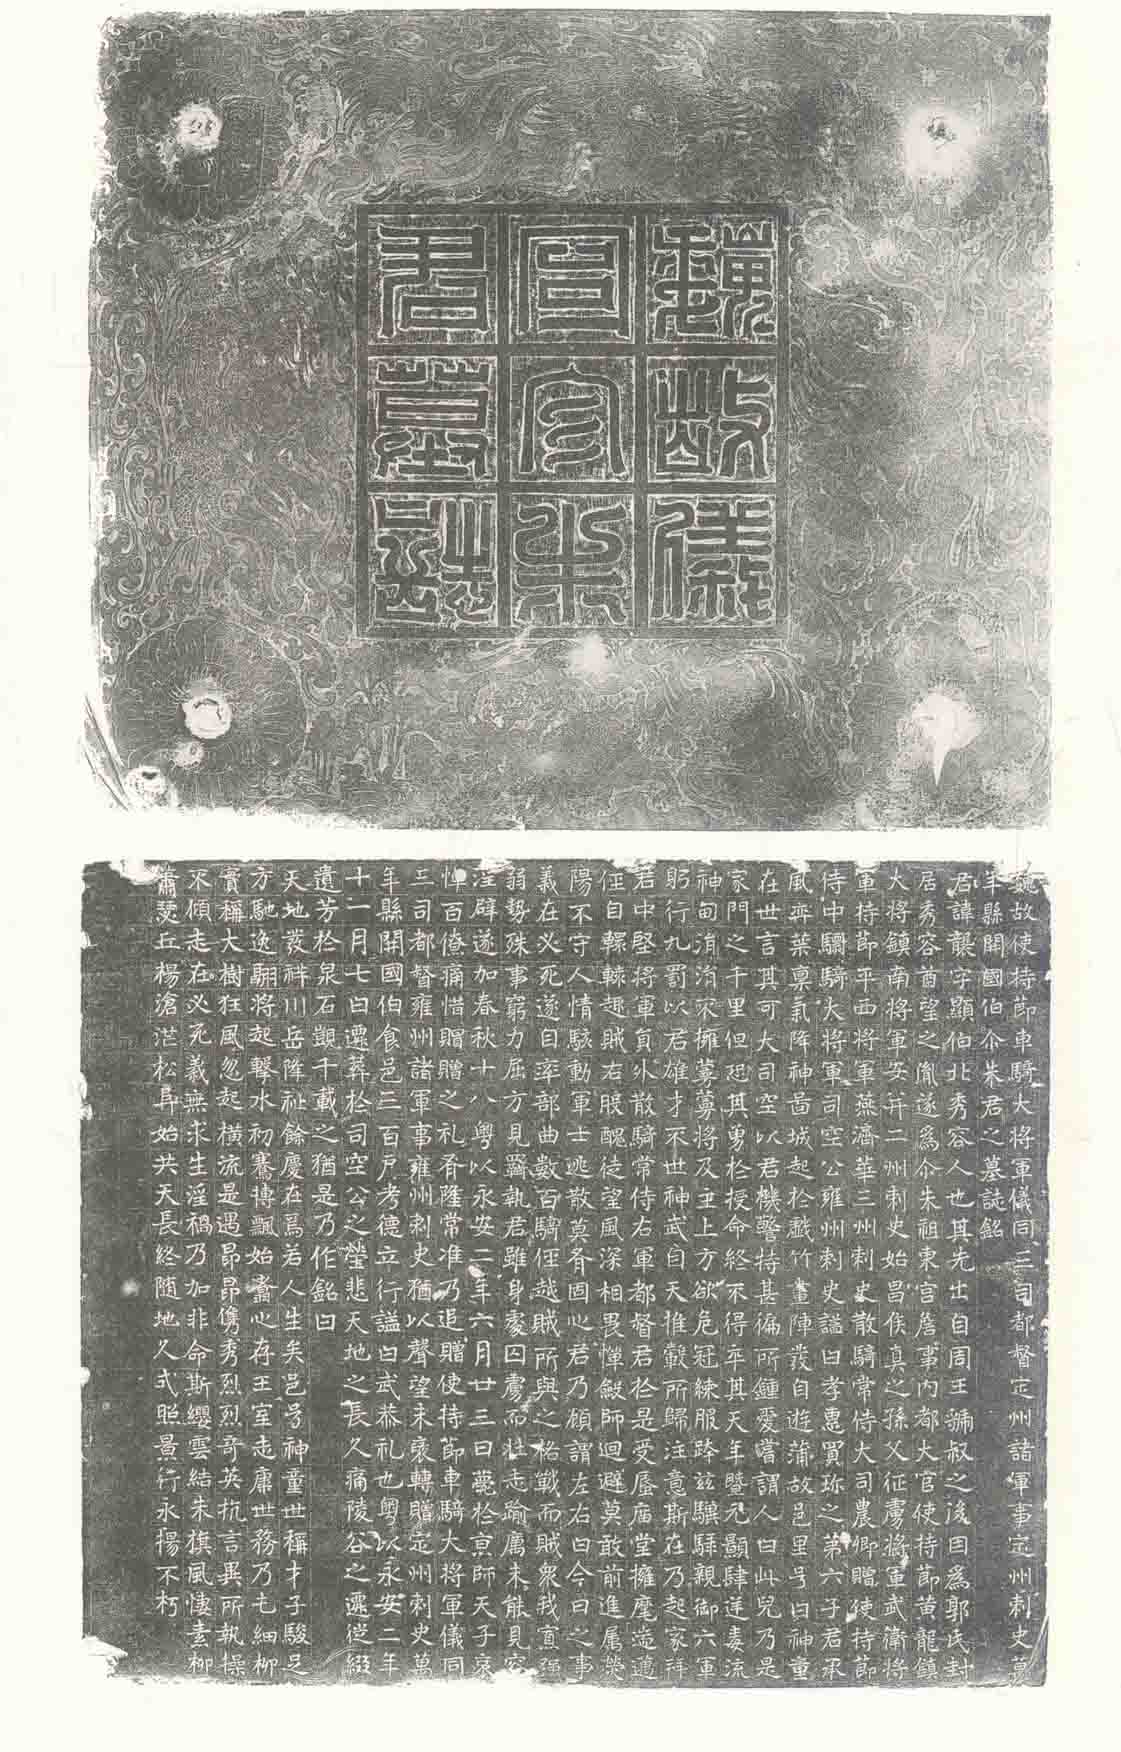 魏故儀
同尒朱
君墓誌
魏故使持節車騎大將軍儀同三司都督定州諸軍事定州刺史萬
年縣開國伯尒朱君之墓誌銘
君諱襲字顯伯北秀容人也其先出自周王虢叔之後因為郭氏封
居秀容酋望之胤遂為尒朱祖東宫詹事内都大官使持節黄龍鎮
大將鎮南將軍安并二州刺史始昌侯真之孫父征虜將軍武衛將
軍持節平西將軍燕濟華三州刺史散騎常侍大司農卿贈使持節
侍中驃騎大將軍司空公雍州刺史謚曰孝惠買珍之第六子君承
風齊葉禀氣降神啚城起於戲竹畫陣發自遊蒲故邑里号曰神童
在世言其可大司空以君機警特甚徧所鍾愛嘗謂人曰此兒乃是
家門之千里但恐其勇於授命終不得卒其天年暨元顥肆逆毒流
神甸涓涓不擁蔓蔓將及主上方欲危冠練服跨兹驥騄親御六軍
躬行九罰以君雄才不世神武自天推轂所歸注意斯在乃起家拜
君中堅將軍員外散騎常侍右軍都督君於是受脤庙堂擁麾遄邁
俓自轘轅趨賊右眼醜徒望風深相畏憚斂師迴避莫敢前進属滎
陽不守人情駭動軍士逃散莫肯固心君乃顧謂左右曰今日之事
義在必死遂自率部曲數百騎俓越賊所與之格戰而賊衆我寡强
弱勢殊事窮力屈方見羈執君雖身處囚虜而壯志踰厲未能見容
淫辟遂加春秋十八粤以永安二年六月廿三日薨於京師天子哀
悼百僚痛惜贈賵之礼有隆常准乃追贈使持節車騎大將軍儀同
三司都督雍州諸軍事雍州刺史猶以聲望未褒轉贈定州刺史萬
年縣開國伯食邑三百戶考德立行謚曰武恭礼也粤以永安二年
十一月七日遷葬於司空公之塋悲天地之長久痛陵谷之遷從綴
遺芳於泉石覬千載之猶是乃作銘曰
天地發祥川岳降祉餘慶在焉若人生矣邑号神童世稱才子駿足
方馳逸翮將起擊水初騫摶飄始翥心存王室志庸世務乃屯細柳
實稱大樹狂風忽起横流是遇昂昂儁秀烈烈奇英抗言異所執操
不傾志在必死義無求生淫禍乃加非命斯纓雲結朱旗風悽素柳
蕭瑟丘楊滄茫松阜始共天長終隨地久式昭景行永揚不朽